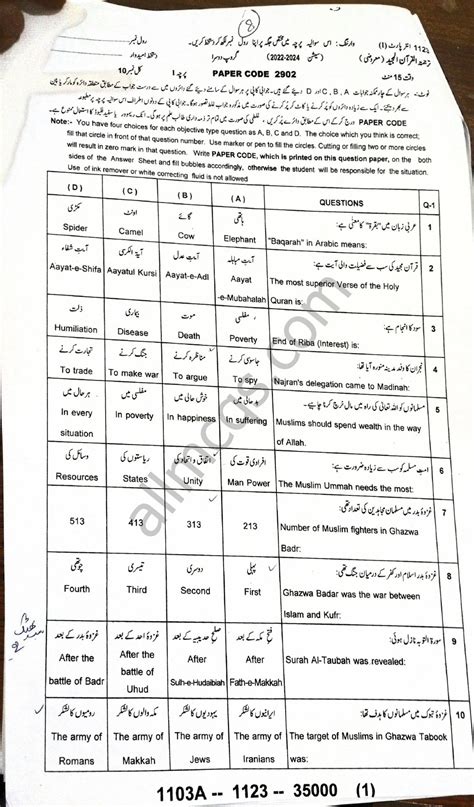 8
رول نمبر: وارننگ: اس سوالیہ پرچہ میں مختص جگہ پر اپنا رول نمبر لکھ کر دستخط کریں۔ 1123 انٹر پارٹ (I)
دستخط امیدوار (سیشن 2022-2024) گروپ دوسرا ترجمۃ القرآن المجید (معروضی)
کل نمبر 10 پرچہ 1 PAPER CODE 2902 وقت 15 منٹ
PAPER CODE
Note:- You have four choices for each objective type question as A, B, C and D. The choice which you think is correct;
fill that circle in front of that question number. Use marker or pen to fill the circles. Cutting or filling two or more circles
will result in zero mark in that question. Write PAPER CODE, which is printed on this question paper, on the both
sides of the Answer Sheet and fill bubbles accordingly, otherwise the student will be responsible for the situation.
Use of ink remover or white correcting fluid is not allowed
(D) (C) (B) (A) QUESTIONS Q-1
مکڑی اونٹ گائے ہاتھی عربی زبان میں "بقرۃ" کا معنٰی ہے: 1
Spider Camel Cow Elephant "Baqarah" in Arabic means:
آیتِ شفاء آیۃ الکرسی آیتِ عدل آیتِ مباہلہ قرآن مجید کی سب سے فضیلت والی آیت ہے: 2
Aayat-e-Shifa Aayatul Kursi Aayat-e-Adl Aayat The most superior Verse of the Holy
-e-Mubahalah Quran is:
ذلت بیماری موت مفلسی سود کا انجام ہے: 3
Humiliation Disease Death Poverty End of Riba (Interest) is:
تجارت کرنے جنگ کرنے مناظرہ کرنے جاسوسی کرنے نجران کا وفد مدینہ منورہ آیا تھا: 4
To trade To make war To argue To spy Najran's delegation came to Madinah:
ہر حال میں مفلسی میں خوش حالی میں بدحالی میں مسلمانوں کو اللہ تعالٰی کی راہ میں مال خرچ کرنا چاہیے۔ 5
In every In poverty In happiness In suffering Muslims should spend wealth in the way
situation of Allah.
وسائل کی ریاستوں کی اتفاق و اتحاد کی افرادی قوت کی امتِ مسلمہ کو سب سے زیادہ ضرورت ہے: 6
Resources States Unity Man Power The Muslim Ummah needs the most:
غزوۂ بدر میں مسلمان مجاہدین کی تعداد تھی: 7
513 413 313 213 Number of Muslim fighters in Ghazwa
Badr:
چوتھی تیسری دوسری پہلی غزوۂ بدر اسلام اور کفر کے درمیان جنگ تھی: 8
Fourth Third Second First Ghazwa Badar was the war between
Islam and Kufr:
غزوۂ بدر کے بعد غزوۂ احد کے بعد صلح حدیبیہ کے بعد فتح مکہ کے بعد سورۃ التوبہ نازل ہوئی: 9
After the After the After After Surah Al-Taubah was revealed:
battle of Badr battle of Sulh-e-Hudaibiah Fath-e-Makkah
Uhud
رومیوں کا لشکر مکہ والوں کا لشکر یہودیوں کا لشکر ایرانیوں کا لشکر غزوۂ تبوک میں مسلمانوں کا ہدف تھا: 10
The army of The army of The army of The army of The target of Muslims in Ghazwa Tabook
Romans Makkah Jews Iranians was:
1103A -- 1123 -- 35000 (1)
allmcqs.com